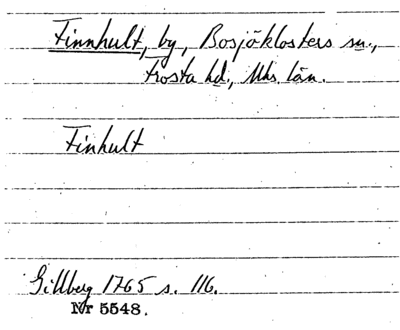 Finnhult, by, Bosjöklosters sn.,
Frosta hd., Mhs. län.
Finhult
Gillberg 1765 s. 116.
Nr 5548.